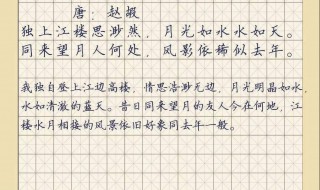 唐：赵嘏
独上江楼思渺然，月光如水水如天。
同来望月人何处，风影依稀似去年。
我独自登上江边高楼，情思浩渺无边，月光明晶如水，
水如清澈的蓝天。昔日同来望月的友人今在何地，江
楼水月相接的风景依旧好象同去年一般。